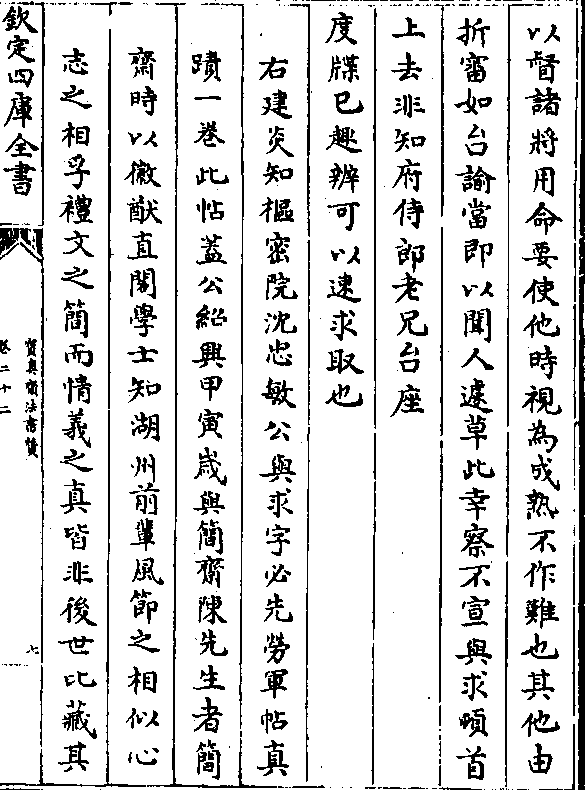 以督諸將用命要使他時視為成熟不作難也其他由
折當如台諭當即以聞人遽草此幸察不宣與求頓首
上去非知府侍郎老兄台座
度牒已趣辦可以速求取也
右建炎知樞密院沈忠敏公與求字必先勞軍帖真
蹟一卷此帖蓋公紹興甲寅嵗與簡齋陳先生者簡
齋時以徽猷直閣學士知湖州前輩風節之相似心
志之相孚禮文之簡而情義之真皆非後世比藏其
欽定四庫全書
寶真齋法書贊
卷二十二
七